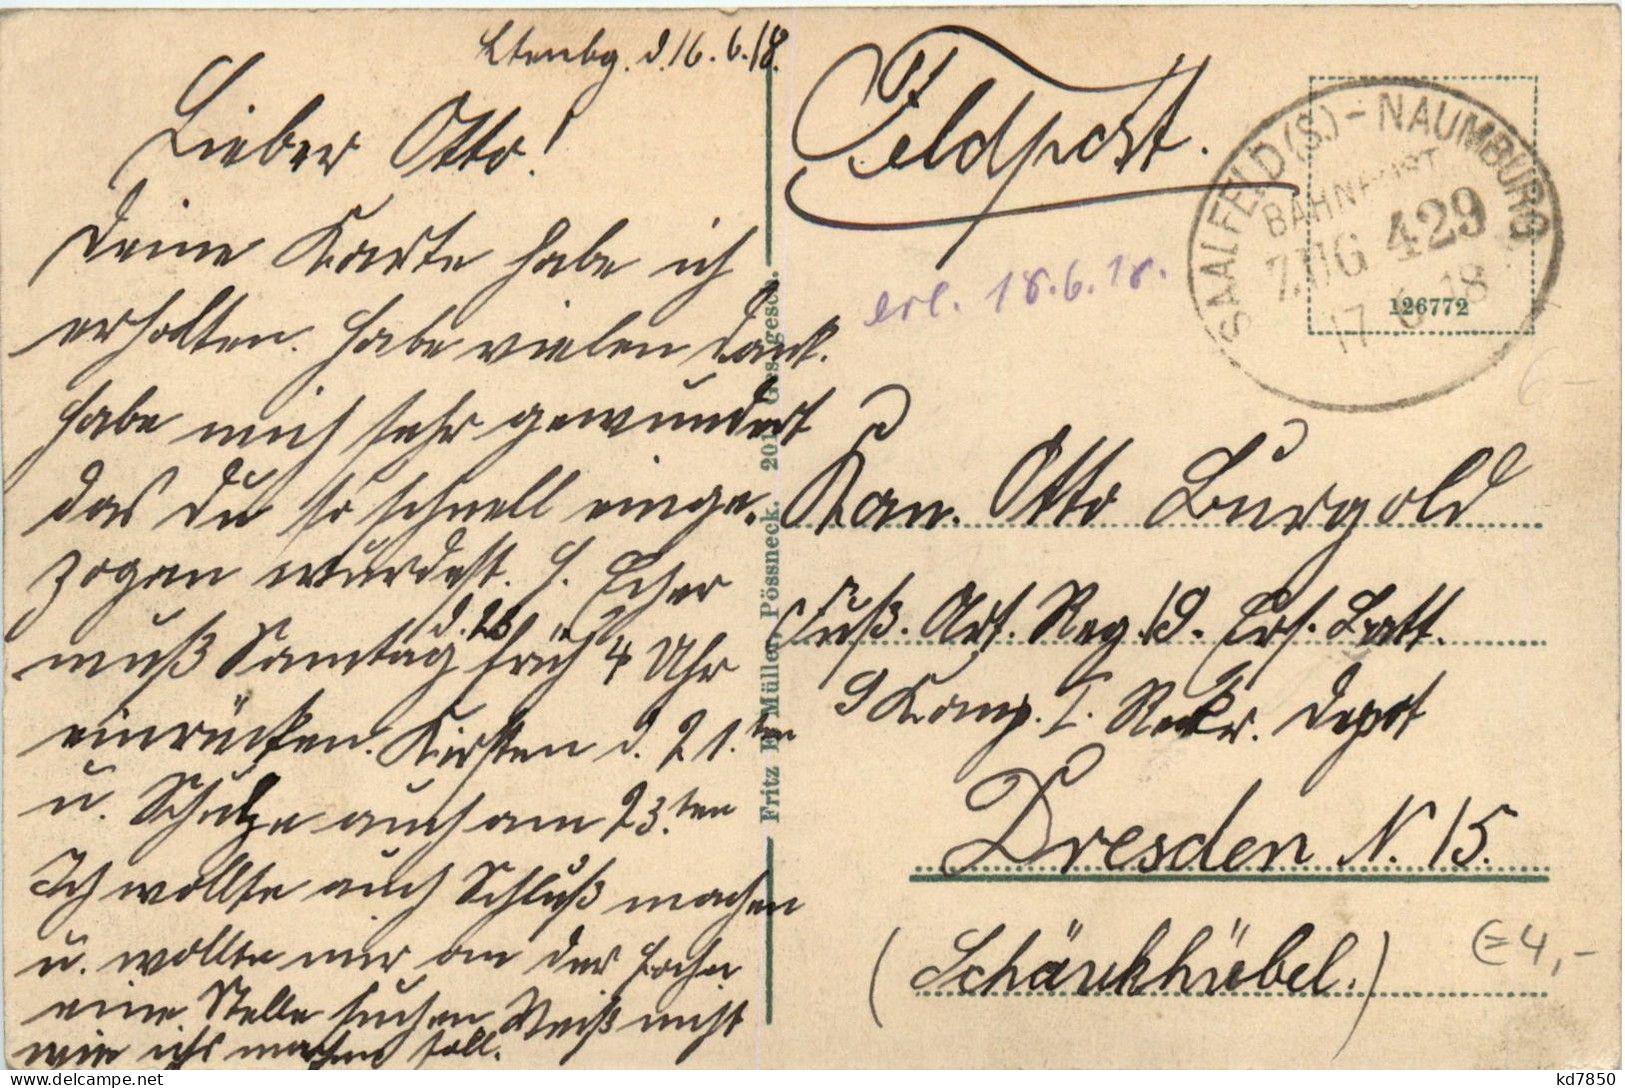 Ltenbg. d. 16.6.18.
Lieber Otto!
Deine Karte habe ich
erhalten. Habe vielen Dank.
Habe mich sehr gewundert
das Du so schnell einge-
zogen wurdest. H.
muß Samtag d. 26 früh 4 Uhr
einrücken. Kirsten d. 21.ten
u. Schulze auch am 23.ten
Ich wollte auch Schluß machen
u. wollte mir an der
eine Stelle suchen Weiß nicht
wie ichs machen soll.
Feldpost.
SAALFELD (S.) - NAUMBURG
BAHNPOST
ZUG 429
17 6 18
126772
erl. 18.6.18.
Kan. Otto Burgold
Fuß. Art. Reg. 19. Ers. Batt.
9 Komp. I. Rekr. Depot
Dresden N. 15.
(Schänkhübel.)
Fritz P. Müller, Pössneck. 201 Ges. gesch.
6-
(=4,-
kd7850